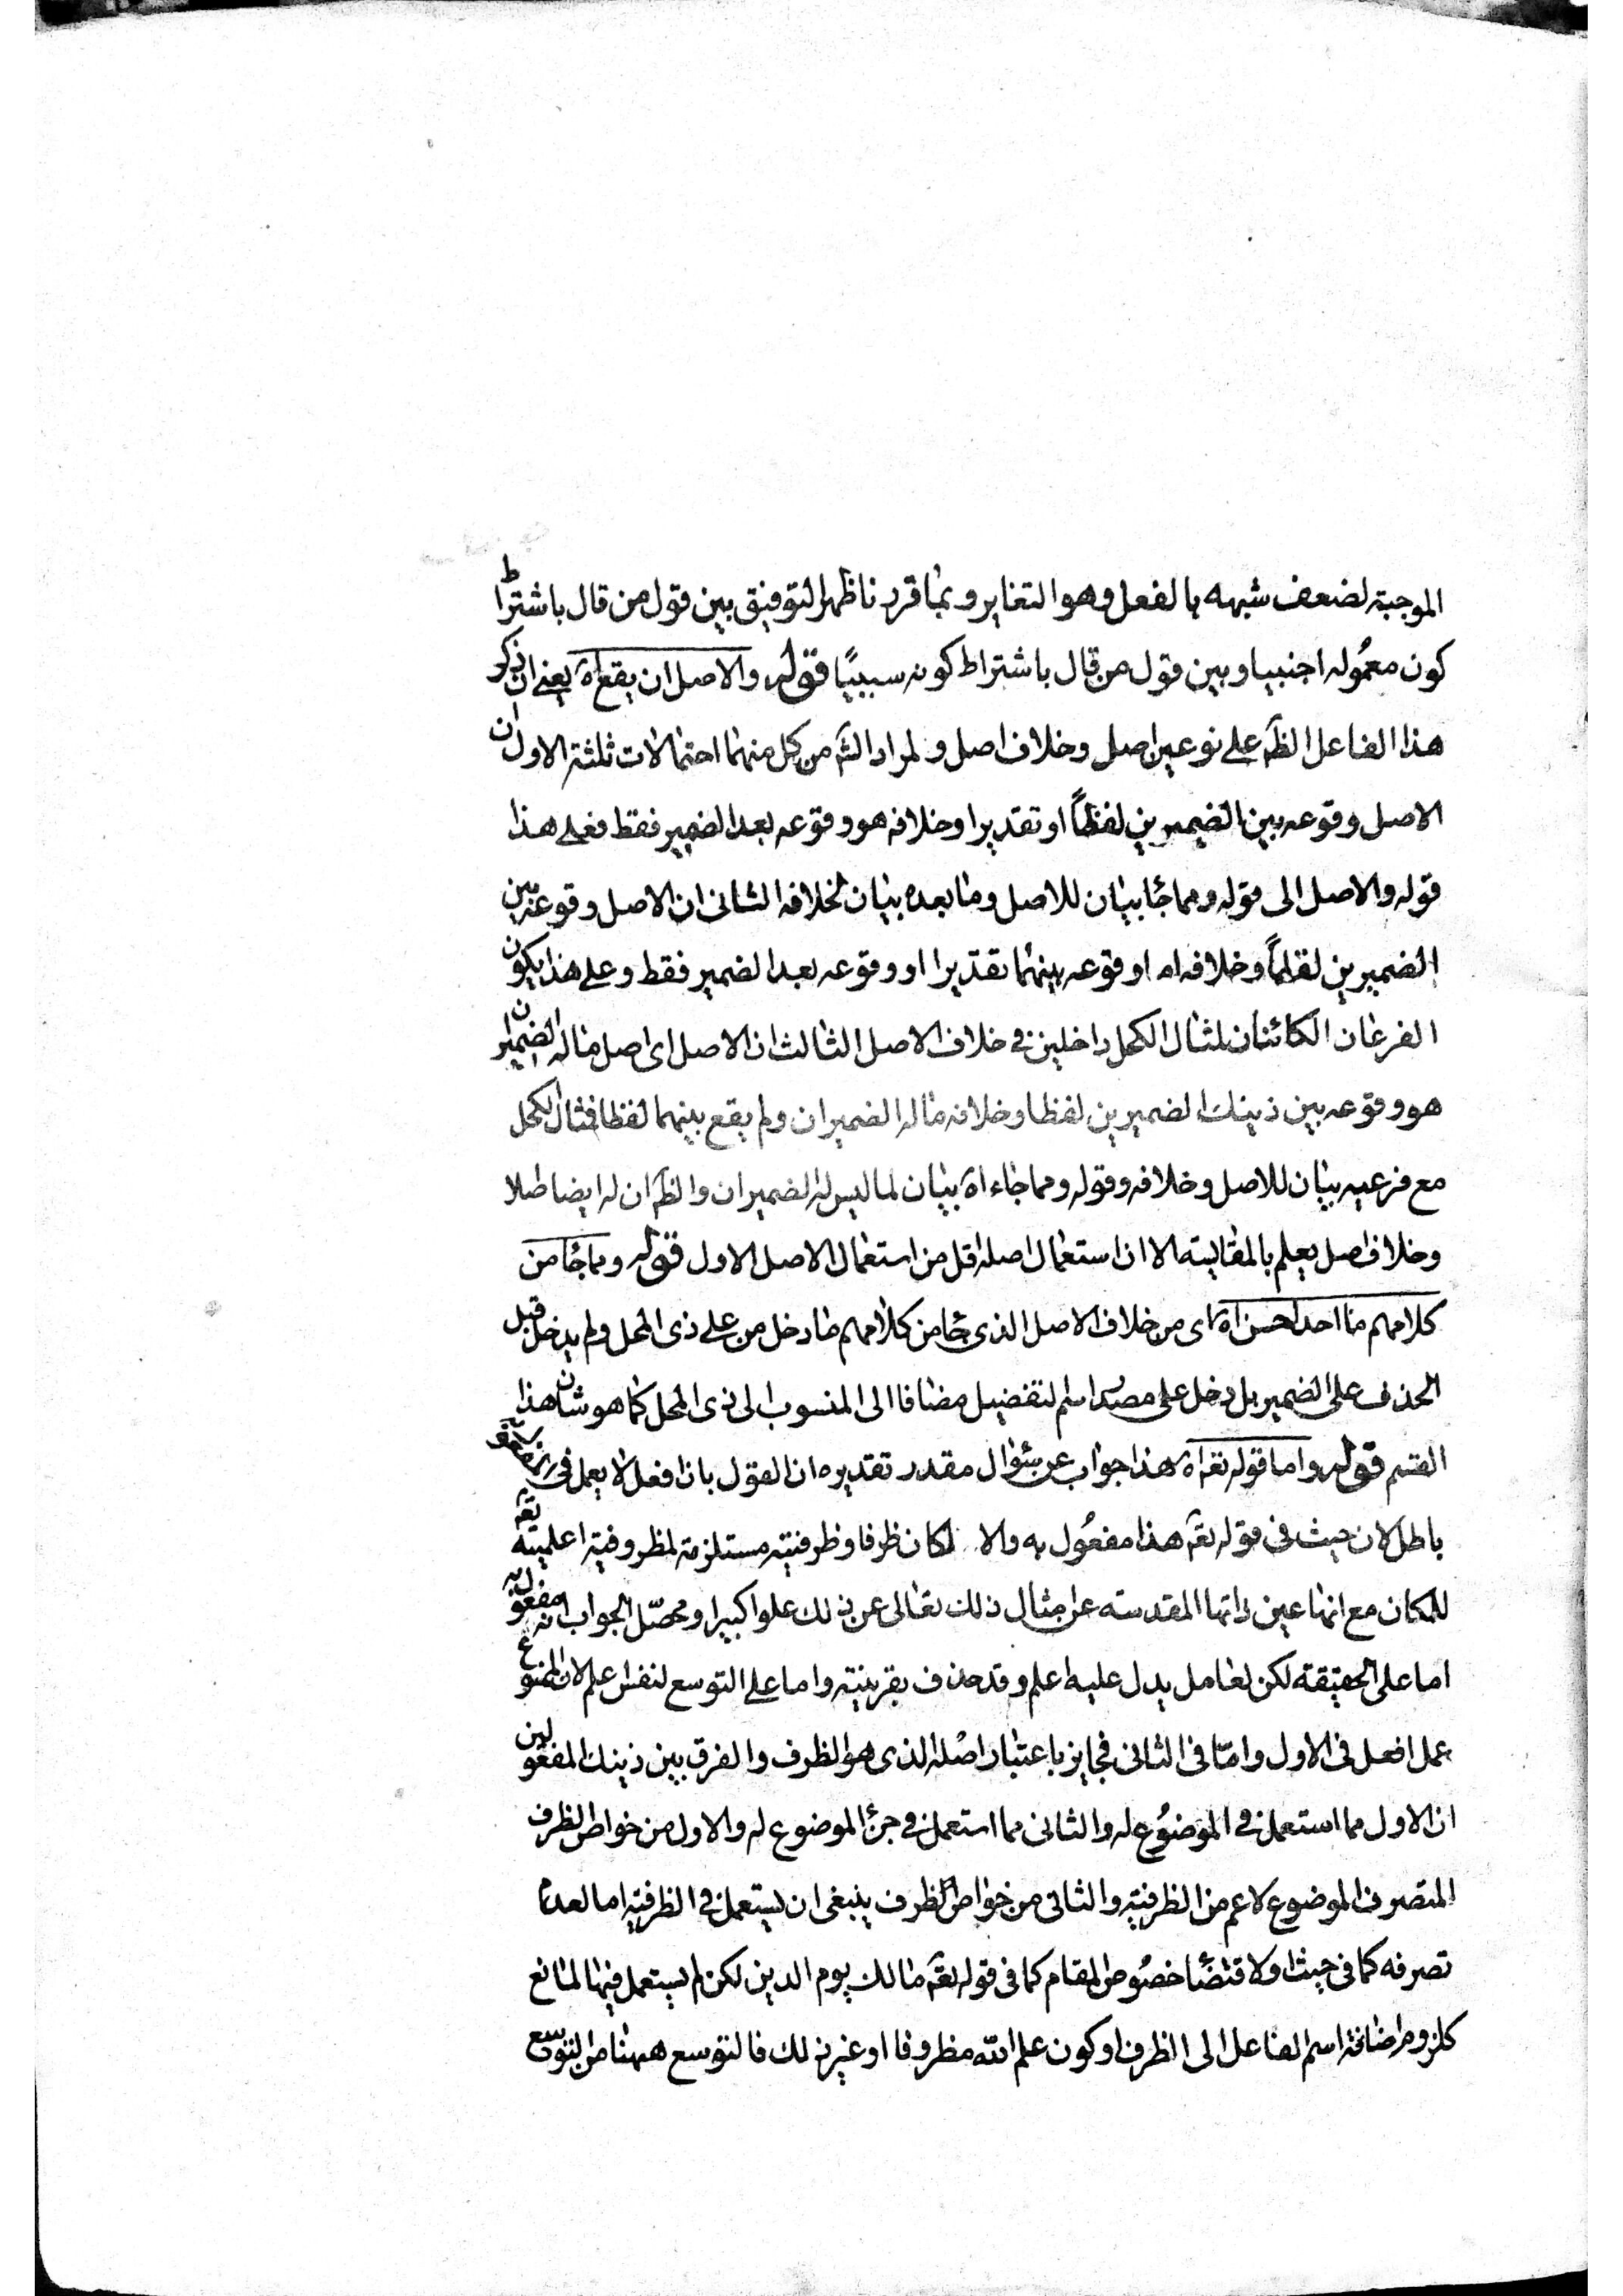 الموجبة لضعف شبهه بالفعل وهو التغاير وبما قررنا ظهر التوفيق بين قول من قال باشتراط
كون معموله اجنبيا وبين قول من قال باشتراط كونه سببيًا قوله والاصل ان يقع اه يعنى ان ذكر
هذا الفاعل الظَ على نوعين اصل وخلاف اصل ولمراد الشَ من كل منهما احتمالات ثلثة الاول ان
الاصل وقوعه بين الضميرين لفظاً او تقديرا وخلافه هو وقوعه بعد الضمير فقط فعلى هذا
قوله والاصل الى قوله ومما جا بيان للاصل وما بعده بيان لخلافه الثانى ان الاصل وقوعه بين
الضميرين لفظاً وخلافه اه او قوعه بينهما تقديرا او وقوعه بعد الضمير فقط وعلى هذا يكون
الفرعان الكائنان لمثال الكحل داخلين فى خلاف الاصل الثالث ان الاصل اى اصل ماله الضميران
هو وقوعه بين ذينك الضميرين لفظا وخلافه ماله الضميران ولم يقع بينهما لفظا فمثال الكحل
مع فرعيه بيان للاصل وخلافه وقوله ومما جاء اه بيان لما ليس له الضميران والظَ ان له ايضا اصلا
وخلاف اصل يعلم بالمقايسة الا ان استعمال اصله اقل من استعمال الاصل الاول قوله ومما جا من
كلامهم ما احد احسن اه اى من خلاف الاصل الذى جا من كلامهم ما دخل من على ذى المحل ولم يدخل قبل
الحذف على الضمير بل دخل على مصدر اسم التفضيل مضافا الى المنسوب الى ذى المحل كما هو شان هذا
القسم قوله واما قوله تعَ اه هذا جواب عن سئوال مقدر تقديره ان القول بان افعل لا يعمل فى
باطل لان حيث فى قوله تعَ هذا مفعُول به والا لكان ظرفا وظرفيته مستلزمة لمظروفية اعلميته تعَ
للمكان مع انها عين ذاتها المقدسة عن امثال ذلك تعالى عن ذلك علوا كبيرا ومحصّل الجواب انه مفعول به
اما على الحقيقة لكن لعامل يدل عليه اعلم وقد حذف بقرينته واما على التوسع لنفس اعلم لان الممنوع
عمل افعل فى الاول وامّا فى الثانى فجايز باعتبار اصله الذى هو الظرف والفرق بين ذينك المفعولين
ان الاول مما استعمل فى الموضوُع له والثانى مما استعمل فى جزء الموضوع له والاول من خواص الظرف
المتصرف الموضوع لاعم من الظرفية والثانى من خواص الظرف ينبغى ان يستعمل فى الظرفية اما لعدم
تصرفه كما فى حيث او لاقتضاء خصُوص المقام كما فى قوله تعَ مالك يوم الدين لكن لم يستعمل فيها لمانع
كلزوم اضافة اسم الفاعل الى الظرف او كون علم الله مظروفا او غير ذلك فالتوسع ههنا من التوسع